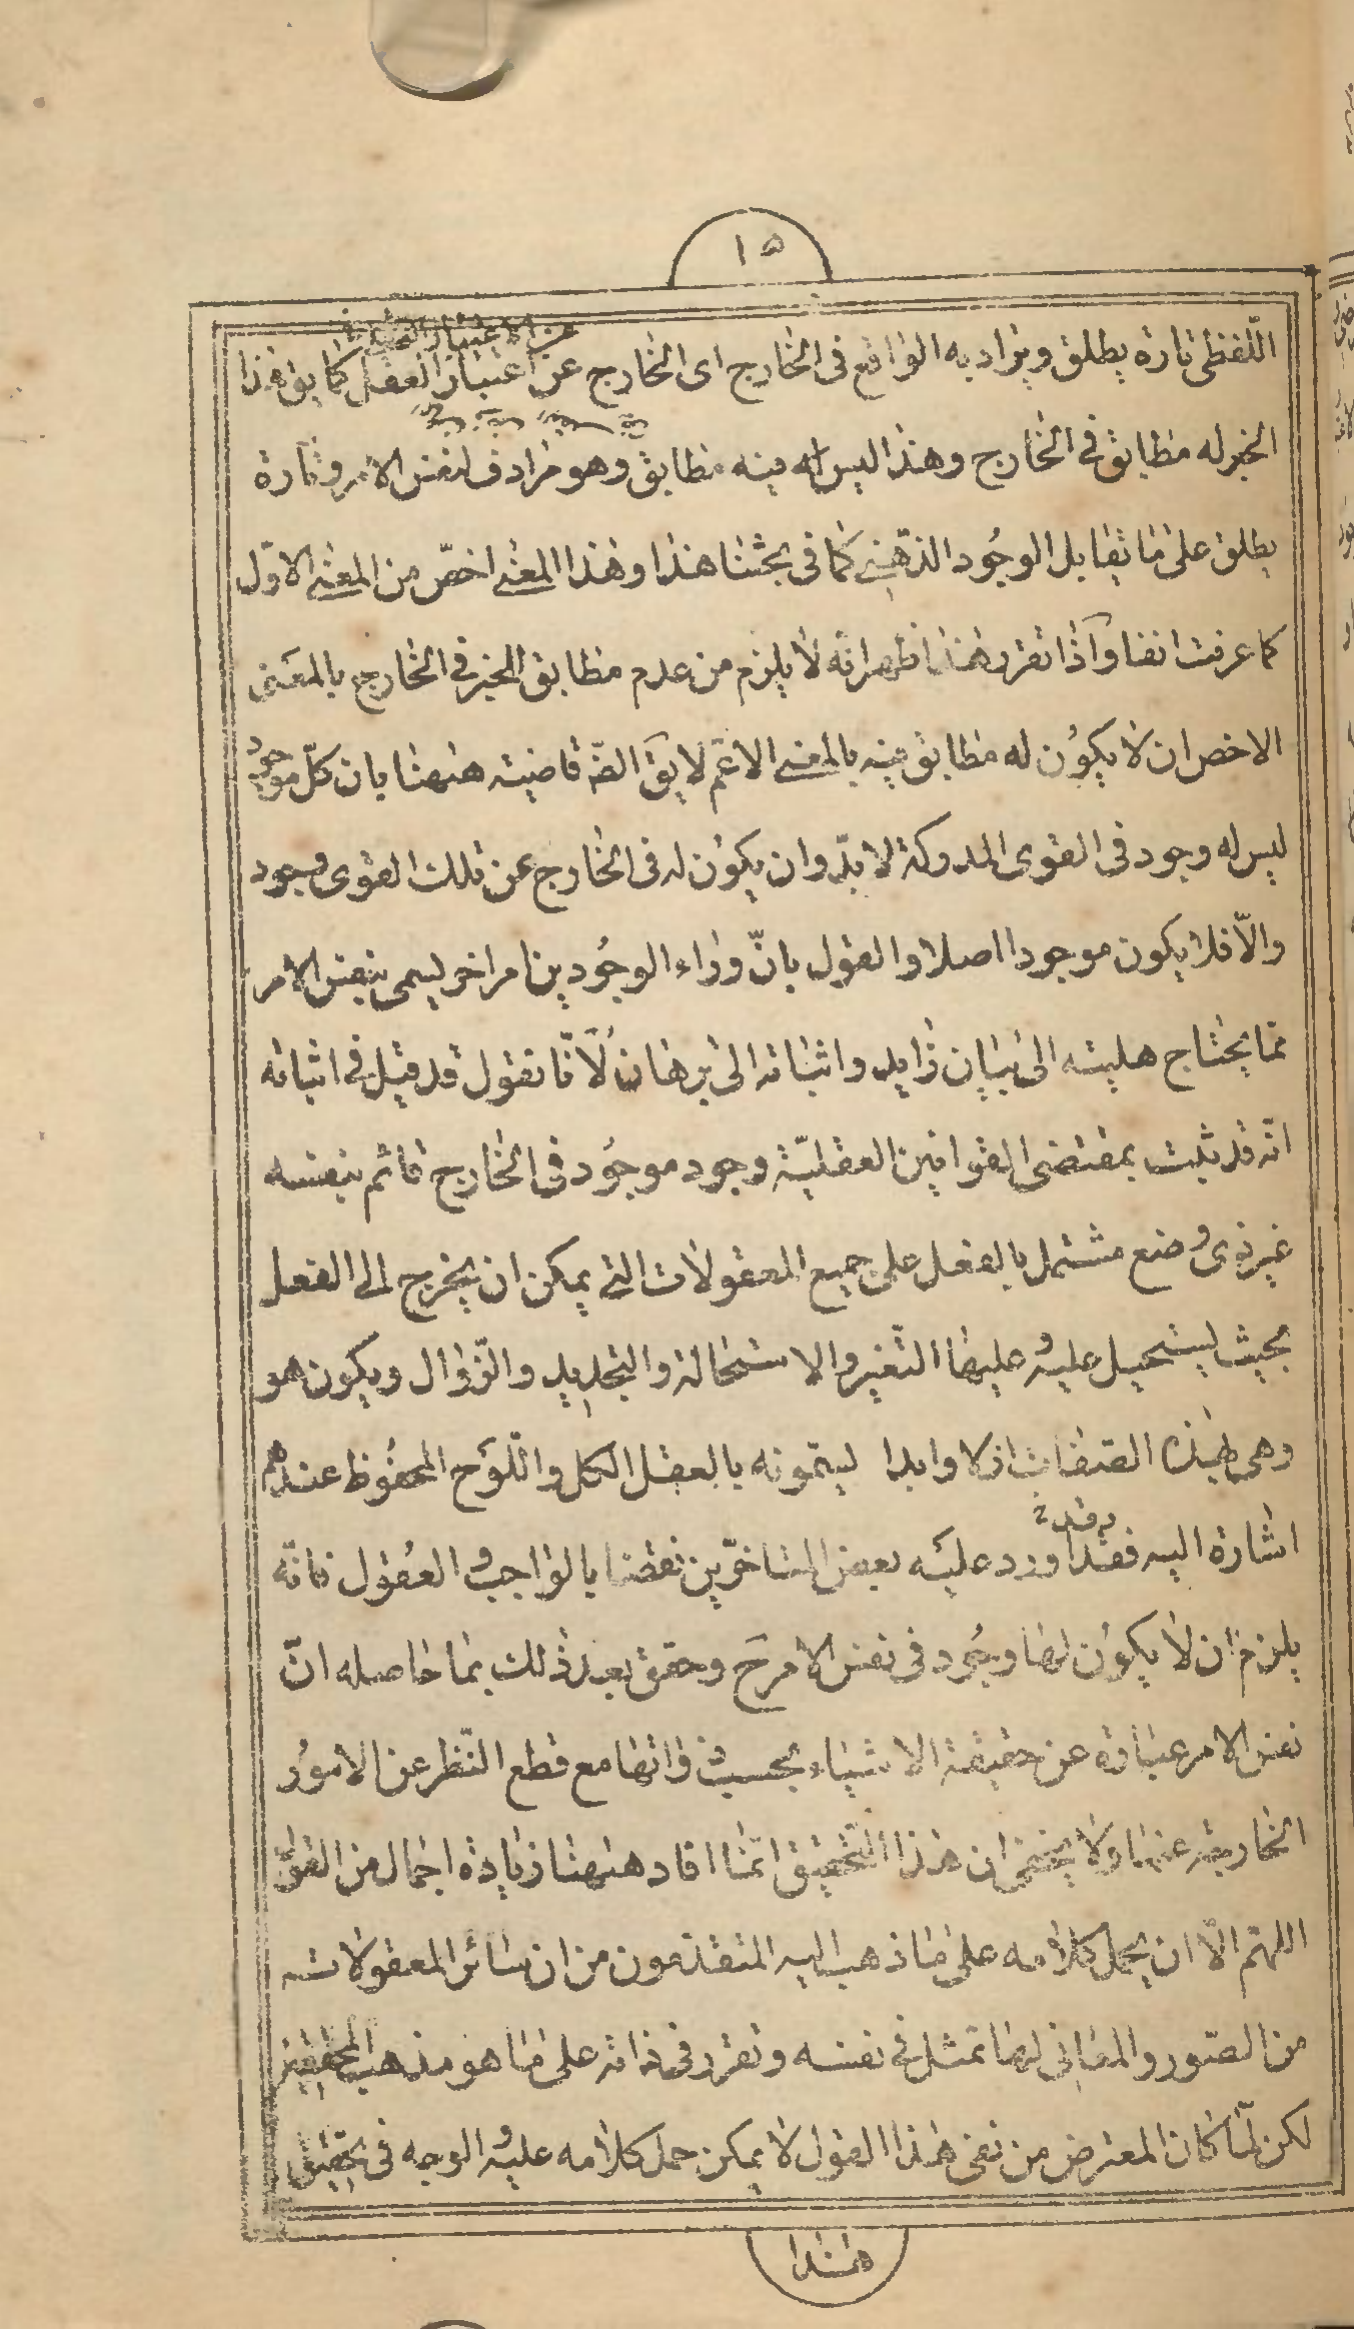 ١٥
اللّفظی تارة یطلق و یراد به الواقع فی الخارج ای الخارج عن اعتبار العقل کما یق هذا
الخبر له مطابق فی الخارج و هذا لیس له فیه مطابق و هو مرادف لنفس الامر و تارة
یطلق علی ما یقابل الوجود الذّهنی کما فی بحثنا هذا و هذا المعنی اخصّ من المعنی الاوّل
کما عرفت انفا و اذا تقرر هذا ظهر انّه لا یلزم من عدم مطابق الخبر فی الخارج بالمعنی
الاخص ان لا یکون له مطابق فیه بالمعنی الاعمّ لا یق الضّ قاضیة ههنا بان کلّ موجود
لیس له وجود فی القوی المدرکة لا بدّ و ان یکون له فی الخارج عن تلک القوی وجود
و الّا فلا یکون موجودا اصلا و القول بانّ وراء الوجودین امر اخر یسمی بنفس الامر
ممّا یحتاج هلیته الی بیان زاید و اثباته الی برهان لانّا نقول قد قیل فی اثباته
انّه قد یثبت بمقتضی القوانین العقلیّة وجود موجود فی الخارج قائم بنفسه
غیر ذی وضع مشتمل بالفعل علی جمیع المعقولات التی یمکن ان یخرج الی الفعل
بحیث یستحیل علیه و علیها التّغیر و الاستحالة و التجدید و الزّوال و یکون هو
و هی بهذه الصّفات ازلا و ابدا یسمّونه بالعقل الکل و اللّوح المحفوظ عندهم
اشارة الیه فقد اورد علیه بعض المتاخّرین نقضا بالواجب و العقول فانّه
یلزم ان لا یکون لها وجود فی نفس الامر ح و حقق بعد ذلک بما حاصله انّ
نفس الامر عبارة عن حقیقة الاشیاء بحسب ذواتها مع قطع النّظر عن الامور
الخارجیّة عنها و لا یخفی ان هذا التّحقیق انّما افاد ههنا زیادة اجمال من القول
اللهمّ الّا ان یحمل کلامه علی ما ذهب الیه المتقدّمون من ان سائر المعقولات
من الصّور و المعانی لها تمثل فی نفسه و تقرر فی ذاته علی ما هو مذهب المحققین
لکن لمّا کان المعترض من نفی هذا القول لا یمکن حمل کلامه علیه و الوجه فی تحقیق
هذا